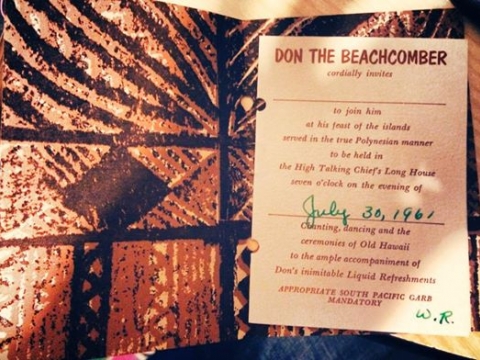 DON THE BEACHCOMBER
cordially invites
to join him
at his feast of the islands
served in the true Polynesian manner
to be held in
the High Talking Chief's Long House
seven o'clock on the evening of
July 30, 1961
Chanting, dancing and the
ceremonies of Old Hawaii
to the ample accompaniment of
Don's inimitable Liquid Refreshments
APPROPRIATE SOUTH PACIFIC GARB
MANDATORY
W.R.